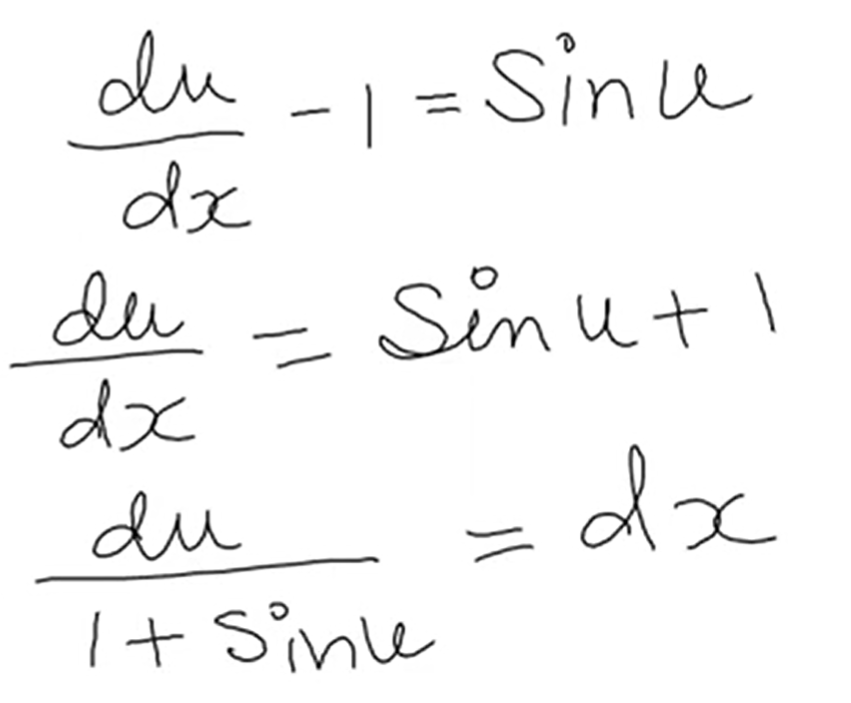 du/dx - 1 = Sin u
du/dx = Sin u + 1
du/(1 + Sin u) = dx